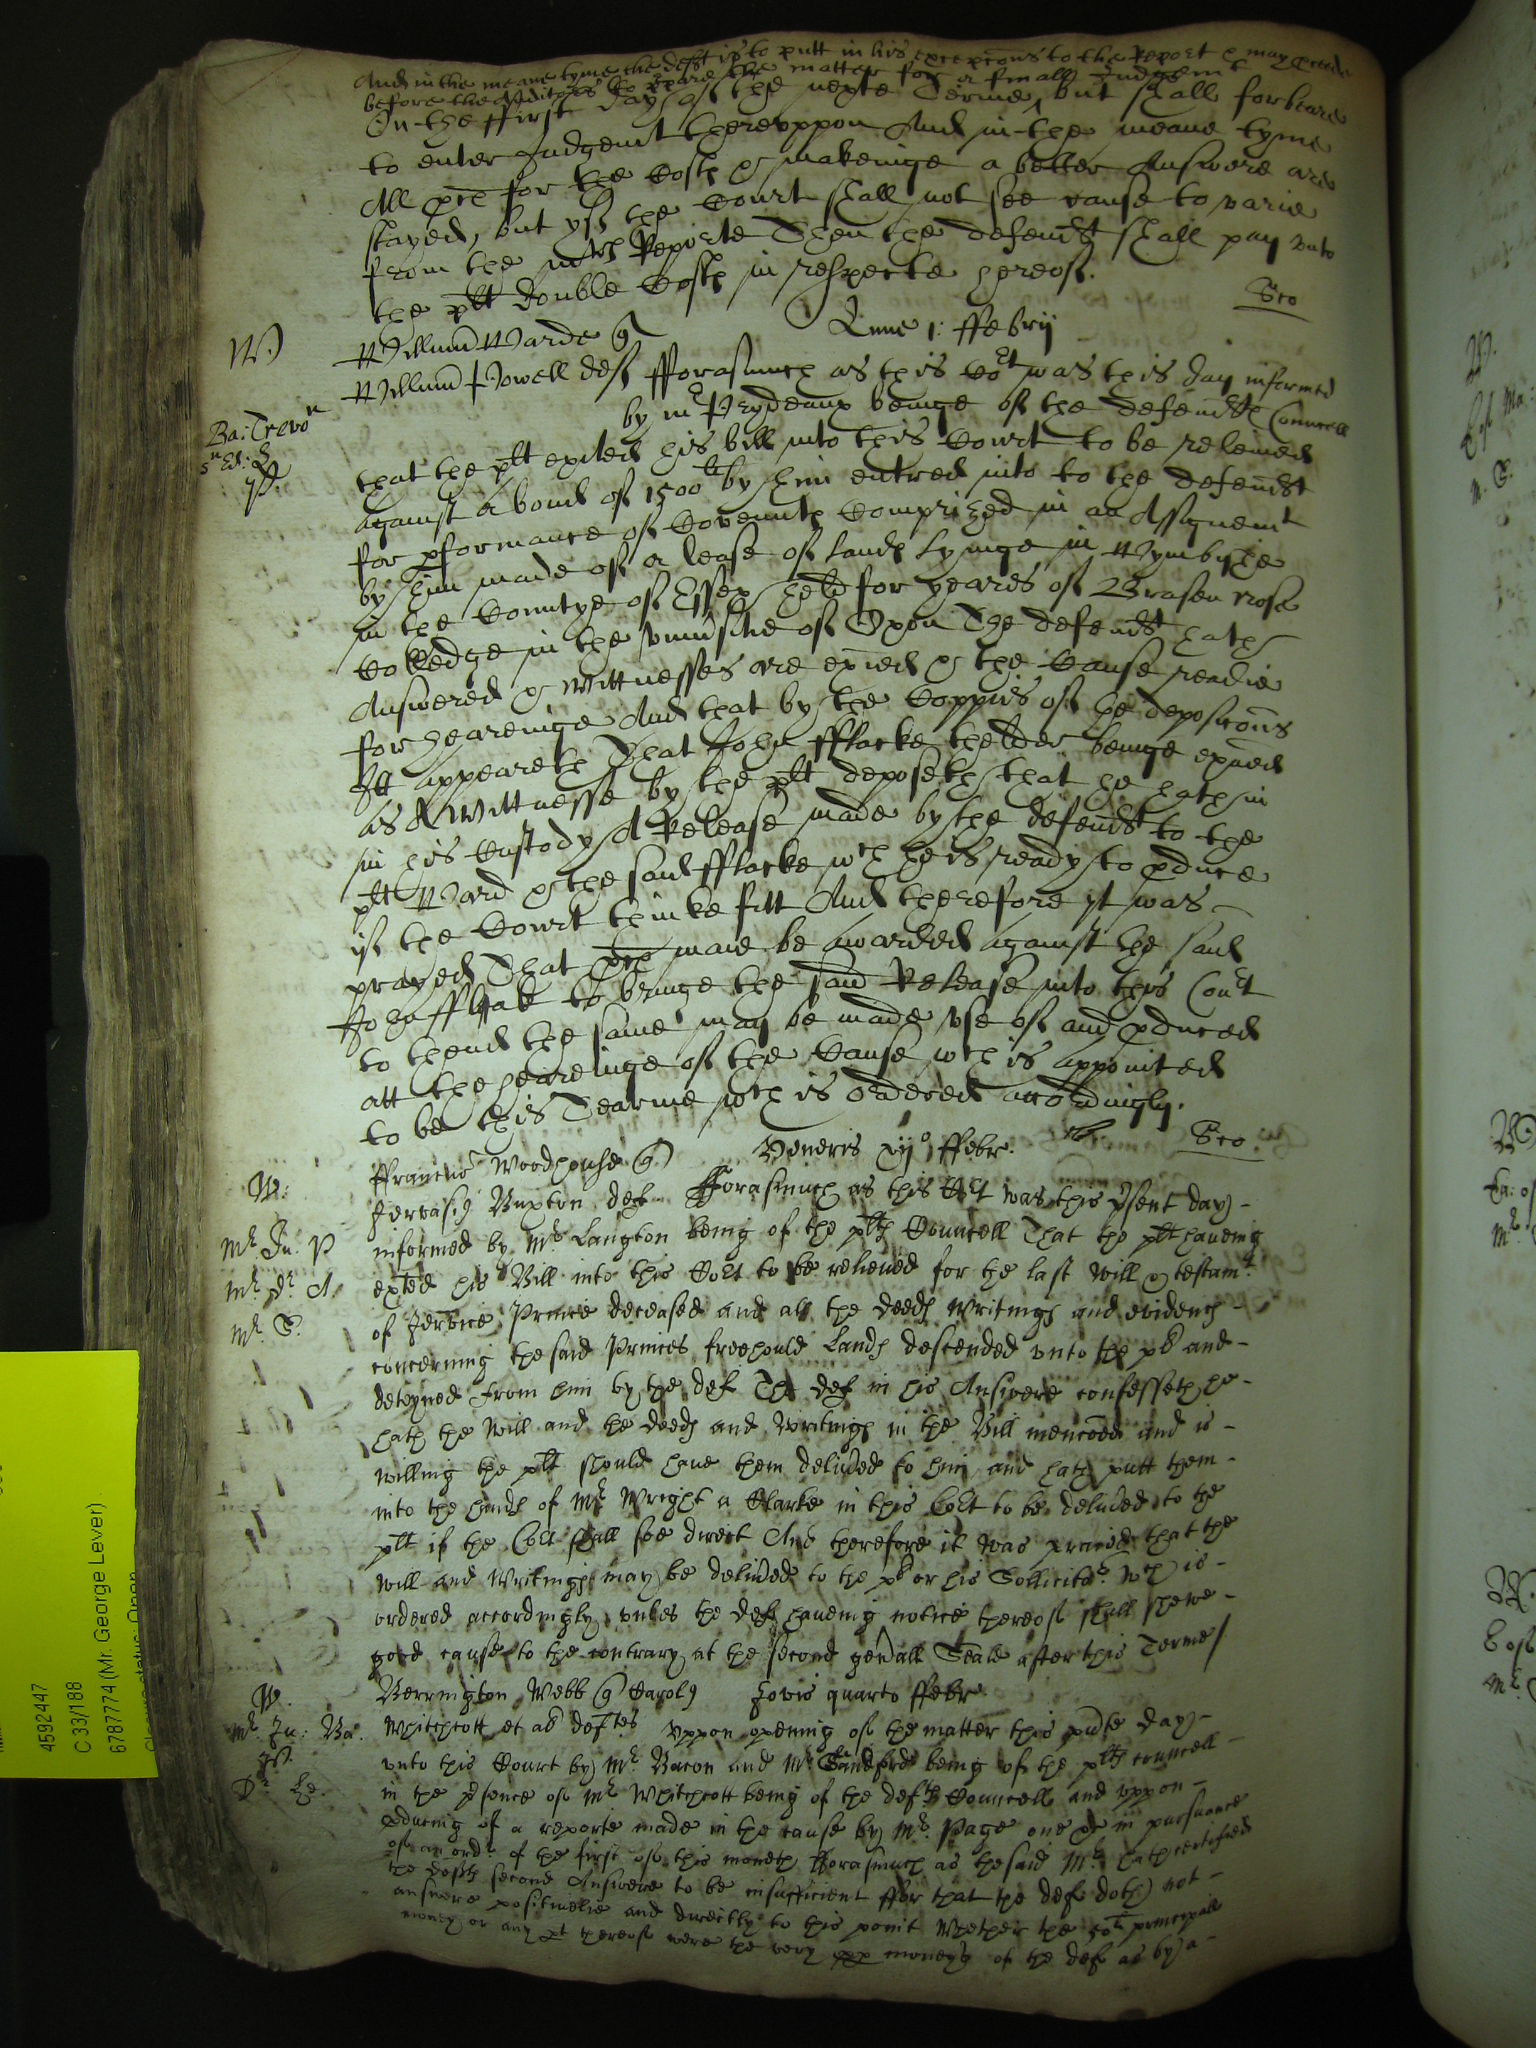 And in the meane tyme the deft is to putt in his excepcons to the Report & may proceede
before the
On the ffirst day of the nexte Terme, but shall forbeare
to enter Judgemt thereuppon And in the meane tyme
All pces for the Costs & makeinge a better Answere are
stayed, but yf the Court shall not see cause to varie
from the mrs Reporte Then the defendt shall pay unto
the plt double Costs in respecte hereof.
Lune 1: ffebrij
Sco
W)
Willmu Warde q
Willmu Powell def fforasmuch as this Cort was this day informed
by mr Prydeaux beinge of the defendts Councell
Ba: Trevor
that the plt exited his bill into this Court to be releived
against a bond of 1500li by him entred into to the defendt
for pformance of Covennts Comprized in an Assignemt
by him made of a lease of lands lyinge in Wymbishe
in the Countye of Essex held for yeares of Brasen nose
Colledge in the Univrsitie of Oxon The defendt hath
Answered & Wittnesses are exied & the Cause readie
for heareinge And that by the Coppies of the deposicons
Itt appeareth That John fflacke thelder beinge exied
as A Wittnesse by the plt deposeth that he hath in
in his Custody A Release made by the defendt to the
plt Ward & the said fflacke wch he is ready to pduce
if the Court thinke fitt And therefore yt was
prayed That pces maie be awarded against the said
John fflack to bringe the said Release into this Court
to thend the same may be made use of and pduced
att the heareinge of the Cause wch is appointed
to be this Tearme wch is ordered accordingly.
Veneris xij° ffebr.
Sco
ffrancus Woodhouse q
W:
Jervasij Buxton def fforasmuch as this Cort was this psent day
Mr Ju: P
informed by Mr Langton being of the plts Councell That the plt haveing
Mr Dr A
exited his Bill into this Cort to be relieved for the last Will & testamt
Mr T.
of Jervice Prince deceased and all the deeds writings and evidences
concerning the said Princes freehould Lands descended unto the plt and
deteyned from him by the def The def in his Answere confesseth he
hath the Will and the deeds and writings in the Bill mencoed and is
willing the plt should have them delived to him and hath putt them
into the hands of Mr Wright a Clarke in this Cort to be delived to the
plt if the Cort shall soe direct And therefore it was praied that the
will and writings may be delived to the plt or his Sollicitor wch is
ordered accordingly unles the def haveing notice thereof shall shewe
good cause to the contrary at the second genall Seale after this Terme/
Berrington Webb q Carolij
Jovis quarto ffebr
W.
Mr Ju: Ba:
Whitchcott et al deftes Uppon opening of the matter this psente day
unto this Court by Mr Bacon and Mr Sandford being of the plts councell
in the psence of Mr Whitchcott being of the defts Councell and uppon
pduceing of a reporte made in the cause by Mr Page one &c in pursuance
of an ordr of the first of this moneth fforasmuch as the said Mr hath certified
the defts second Answere to be insufficient ffor that the def doth not
answere positivelie and directly to this point Whether the 50li principall
money or any pt thereof were the very moneys of the def as by a
4592447
C 33/188
6787774 (Mr. George Lever)
Closure status: Open